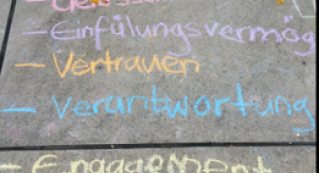 - Einfülungsvermög
- Vertrauen
- Verantwortung
- Engagement